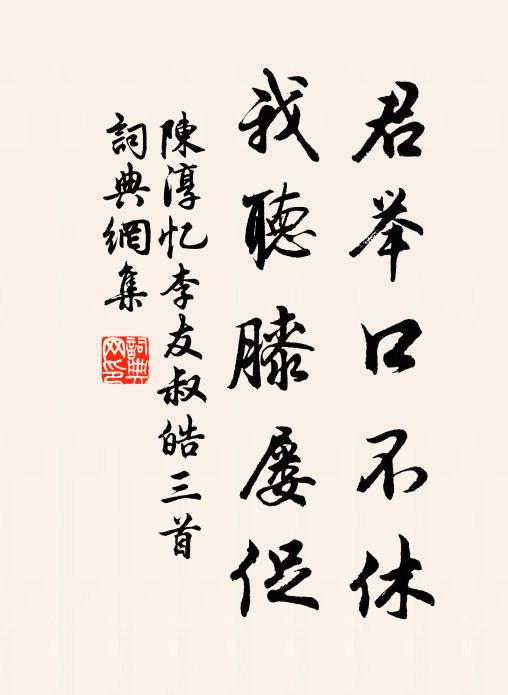 君举口不休
我聽膝屡促
陳淳忆李友叔皓三首
詞典網集
詞典網印